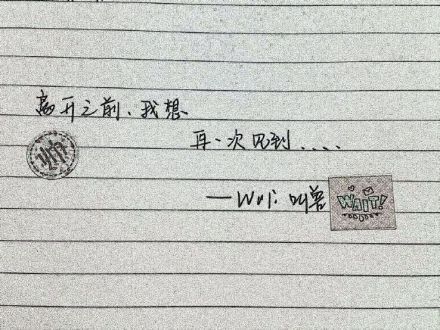 离开之前、我想
再一次见到....
—Wali 叫兽
WAIT!